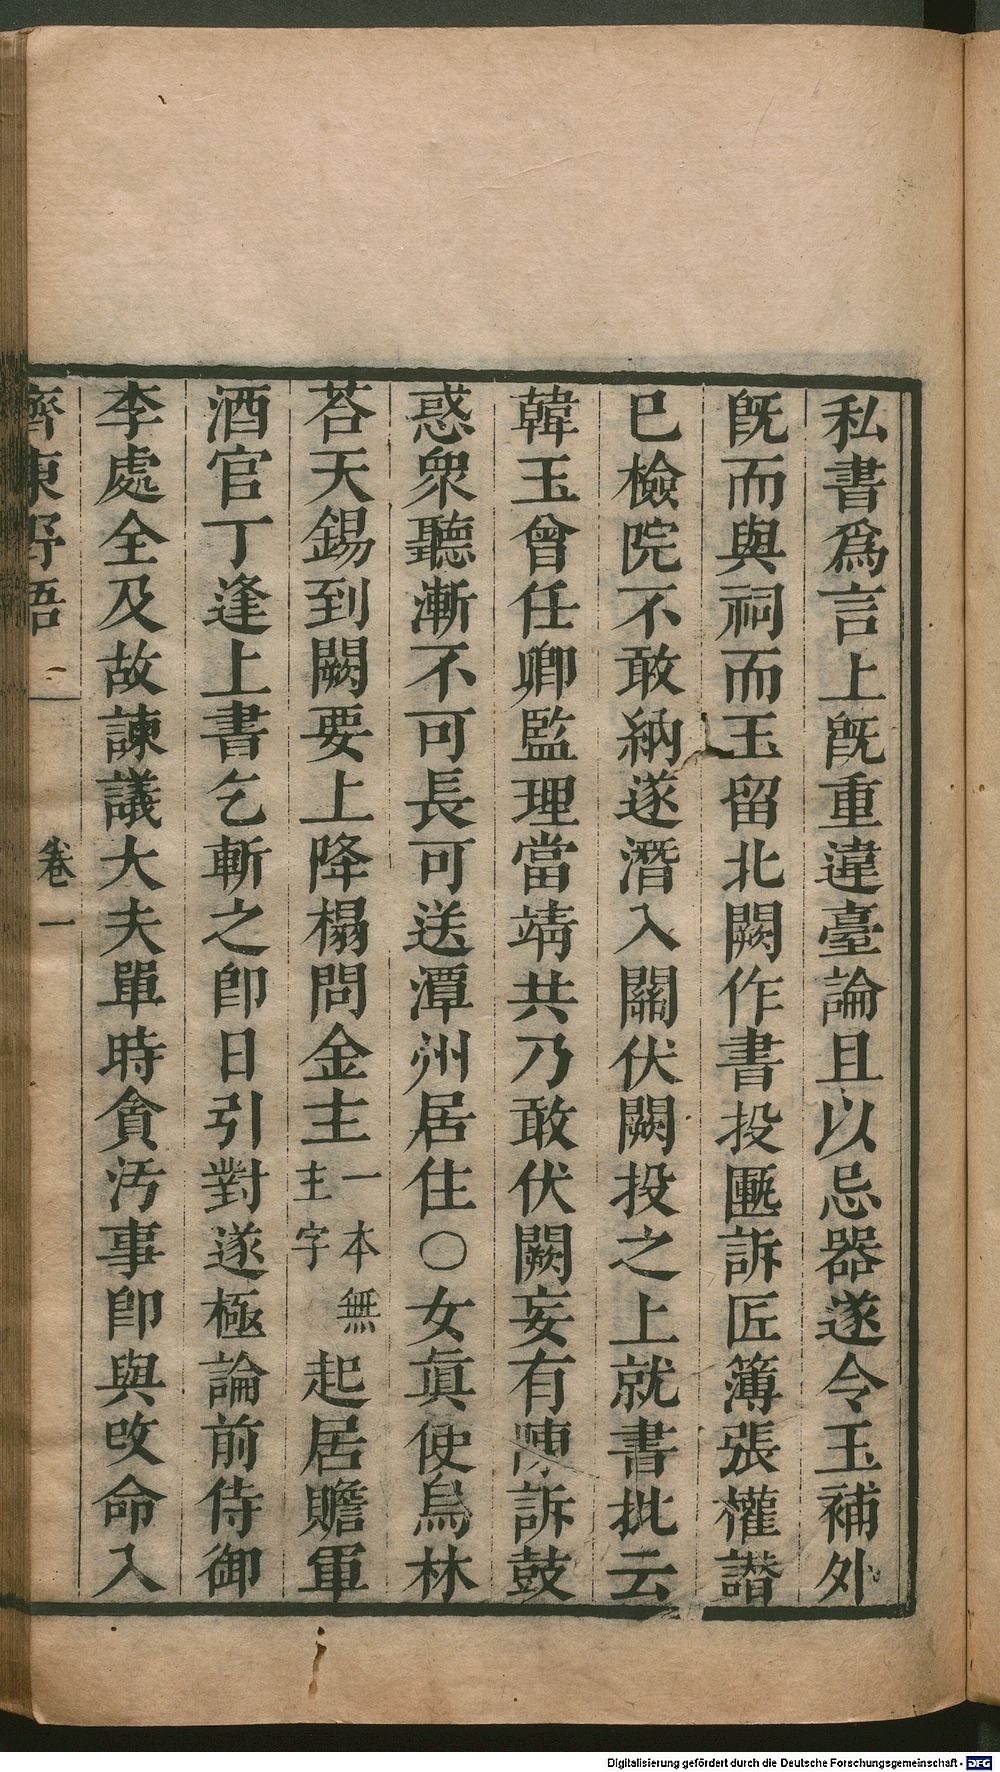 私書爲言上旣重違臺論且以忌器遂令玉補外
旣而與祠而玉留北闕作書投匭訴匠簿張權譛
巳檢院不敢納遂潛入關伏闕投之上就書批云
韓玉曾任卿監理當靖共乃敢伏闕妄有陳訴鼓
惑衆聽漸不可長可送潭州居住〇女眞使烏林
荅天錫到闕要上降榻問金主一本無主字起居贍軍
酒官丁逢上書乞斬之卽日引對遂極論前侍御
李處全及故諫議大夫單時貪汚事卽與改命入
齊東野語
卷一
Digitalisierung gefördert durch die Deutsche Forschungsgemeinschaft - DFG